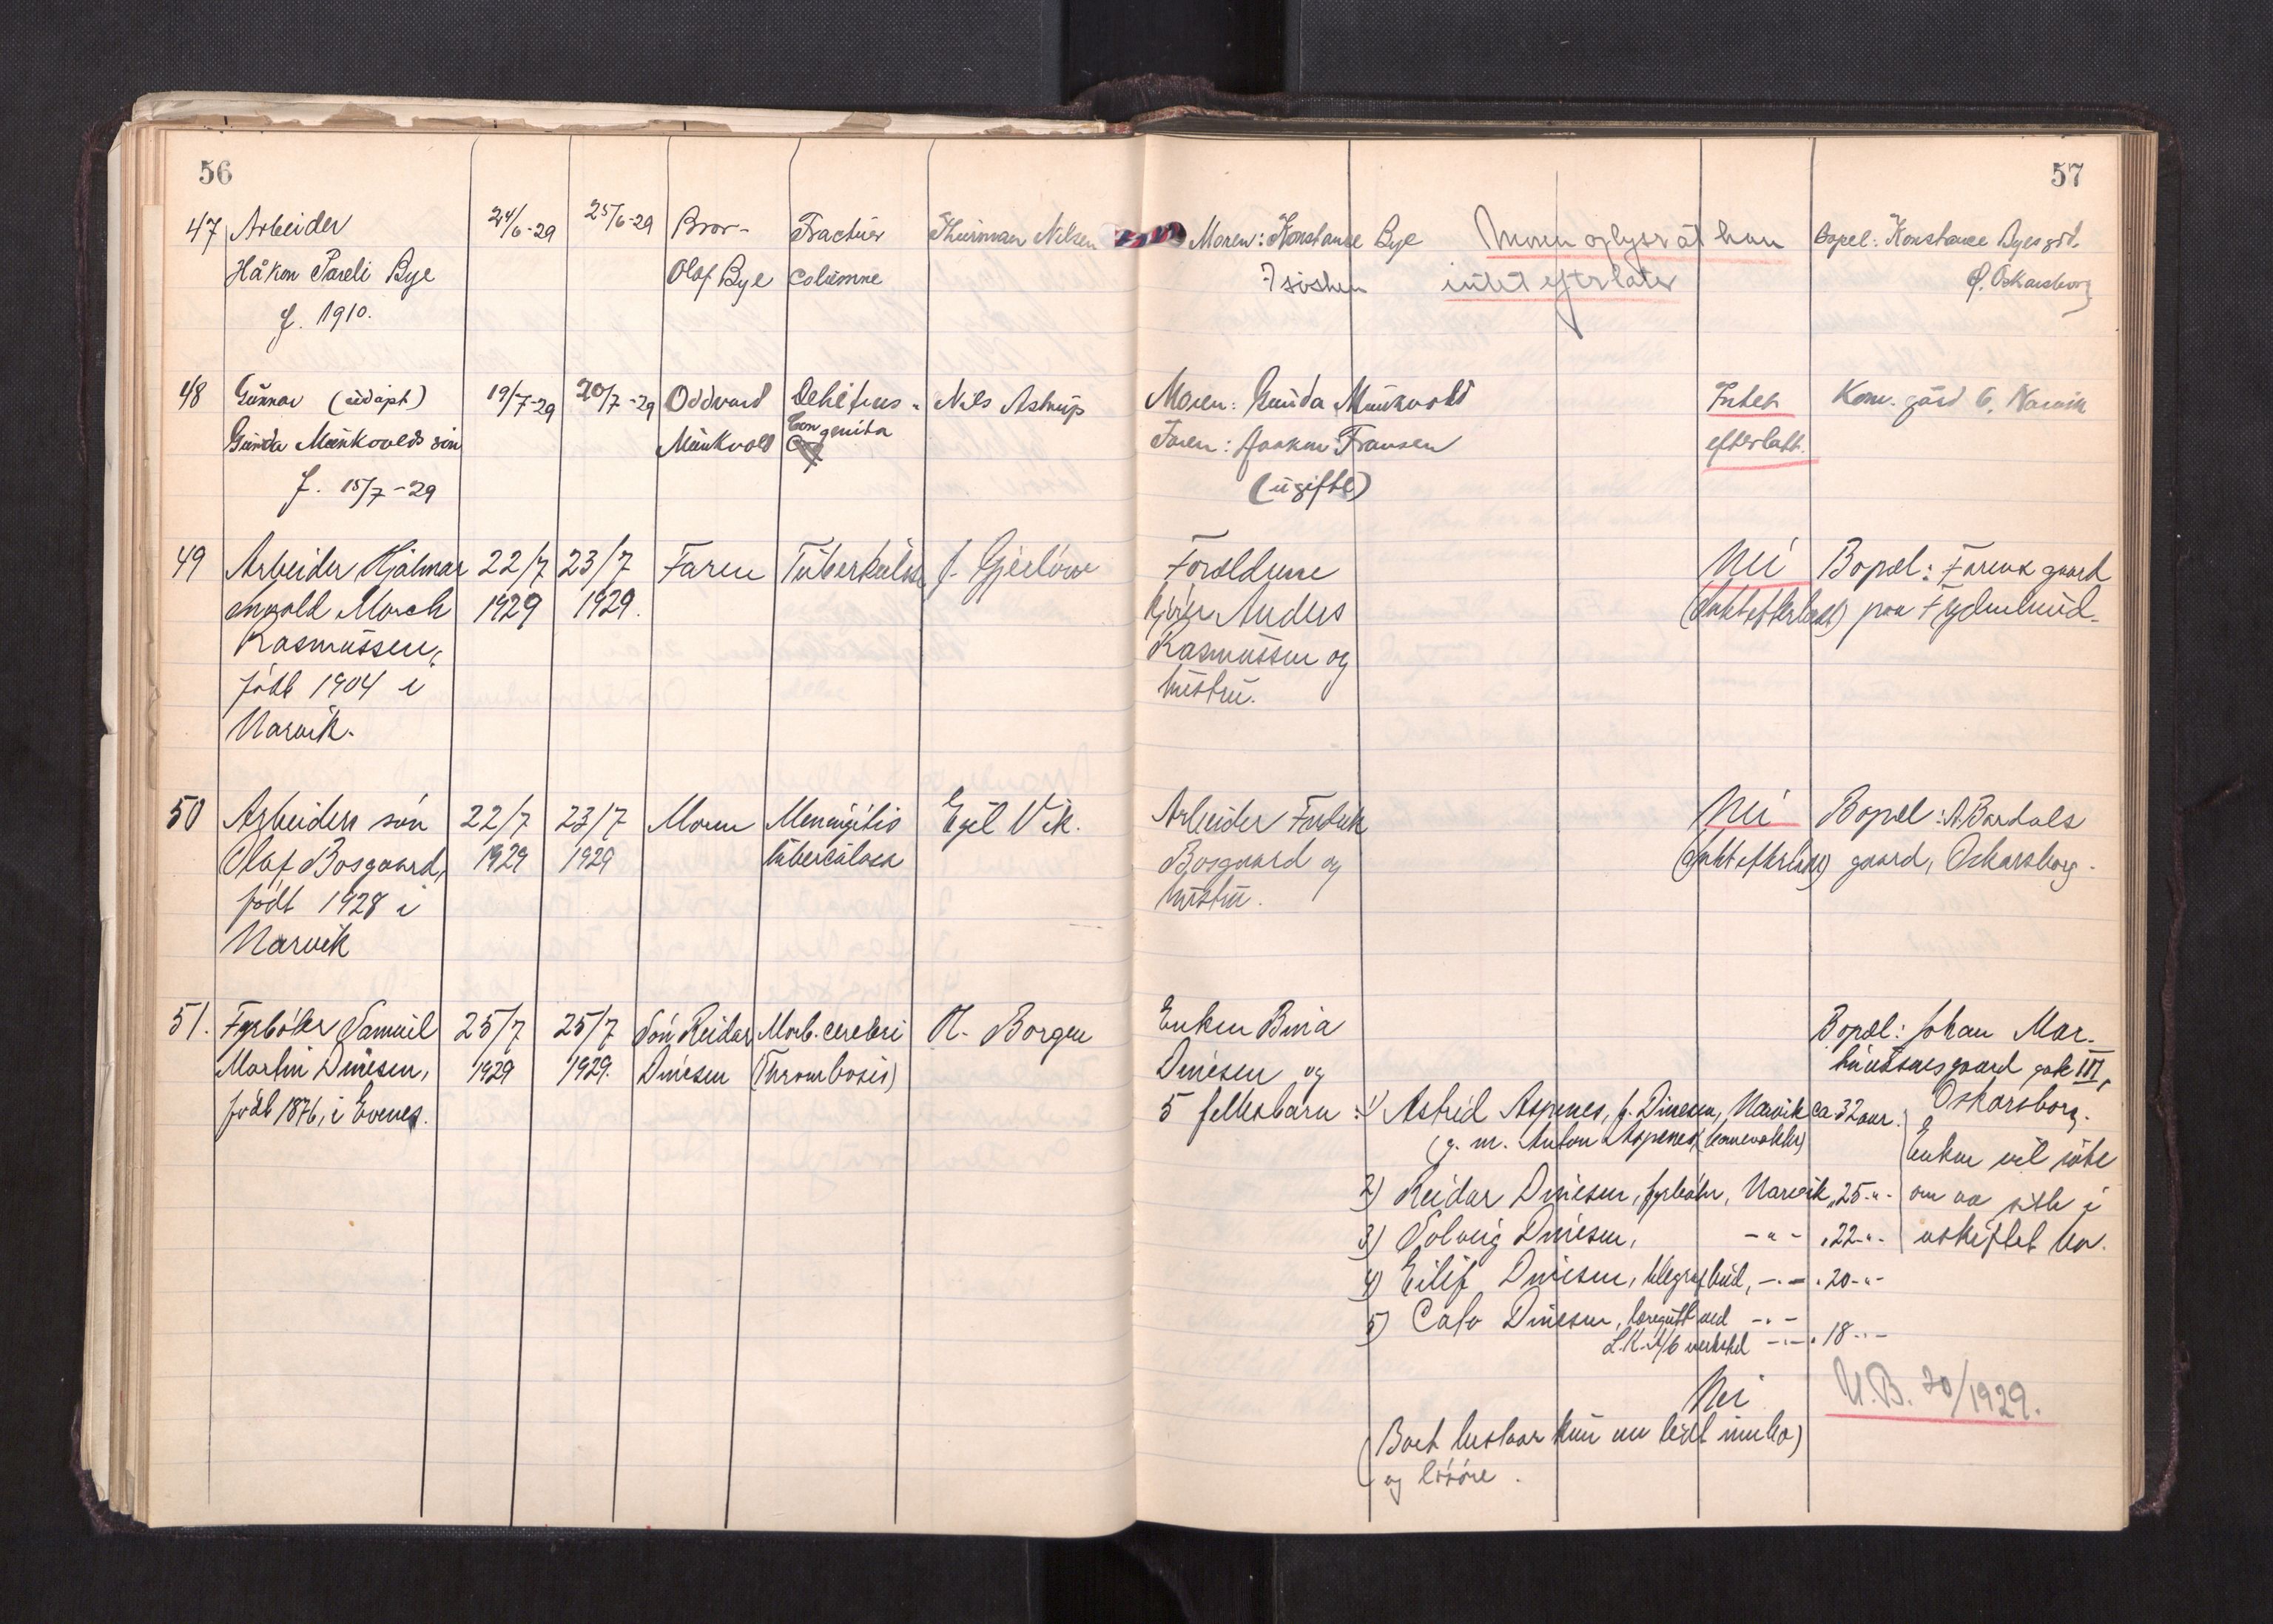 56
57
47 Arbeider 24/6-29 25/6-29 Bror- Fractur Thurman Nilsen Moren: Konstanse Bye Moren oplyser at han Bopel: Konstance Byes grd.
Håkon Pareli Bye Olaf Bye columne 7 sösken intet efterlater Oskarsborg
f. 1910.
48 Gunnar (udöpt) 19/7-29 20/7-29 Oddvard Debilitas Nils Astrup Moren: Gunda Munkvold Intet Kom. gård 6, Narvik
Gunda Munkvolds sön Munkvold Congenita Faren: Haakon Fransen efterlatt.
f. 15/7-29 (ugifte)
49 Arbeider Hjalmar 22/7 23/7 Faren Tuberkulose J. Gjerlöw Foreldrene Nei Bopæl: Farens gaard
Enevold Morch 1929 1929. Kjörer Anders (Intet efterlatt) paa Frydenlund.
Rasmussen, Rasmussen og
född 1904 i hustru.
Narvik.
50 Arbeiders sön 22/7 23/7 Moren Meningitis Egil Vik. Arbeider Fredrik Nei Bopæl: A. Bardals
Olaf Bosgaard, 1929 1929 tuberculosa Bosgaard og (Intet efterlatt) gaard, Oskarsborg.
født 1928 i hustru.
Narvik
51. Fyrböter Samuel 25/7 25/7 Sön Reidar Morb. cerebri O. Borgen Enken Bina Bopæl: Johan Mar-
Martin Dinesen, 1929 1929. Dinesen (Thrombosis) Dinesen og gaard gate III,
född 1876, i Evenes. 5 fellesbarn: 1) Astrid Aspenes, f. Dinesen, Narvik ca 32 aar. Oskarsborg.
(g. m. Anton Aspenes, banevokter) Enken vil söke
2) Reidar Dinesen, fyrböter, Narvik, 25-"- om aa sitte i
3) Solveig Dinesen, -"- , 22-"- uskiftet bo.
4) Eilif Dinesen, telegrafbud, -"- , 20-"-
5) Cato Dinesen, læregutt ved -"-
L.K.A/B verksted -"- , 18-"-
Nei N.B. 70/1929.
(Boet bestaar kun en leid innbo)
og lösöre.